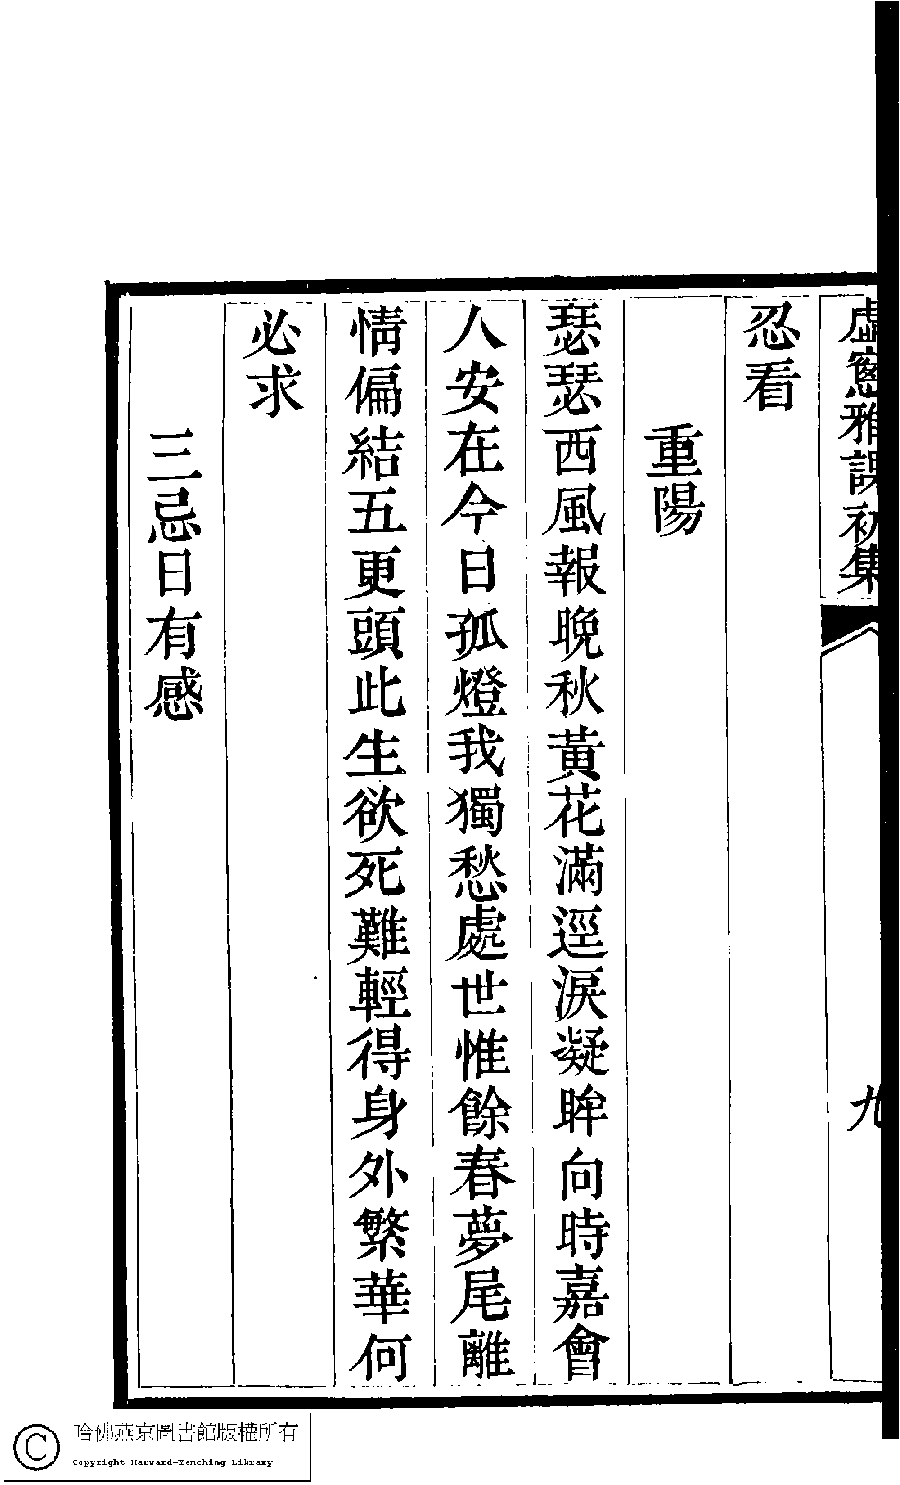 虛窻雅課初集
九
忍看
重陽
瑟瑟西風報晚秋黃花滿逕淚凝眸向時嘉會
人安在今日孤燈我獨愁處世惟餘春夢尾離
情偏結五更頭此生欲死難輕得身外繁華何
必求
三忌日有感
哈佛燕京圖書館版權所有
Copyright Harvard-Yenching Library